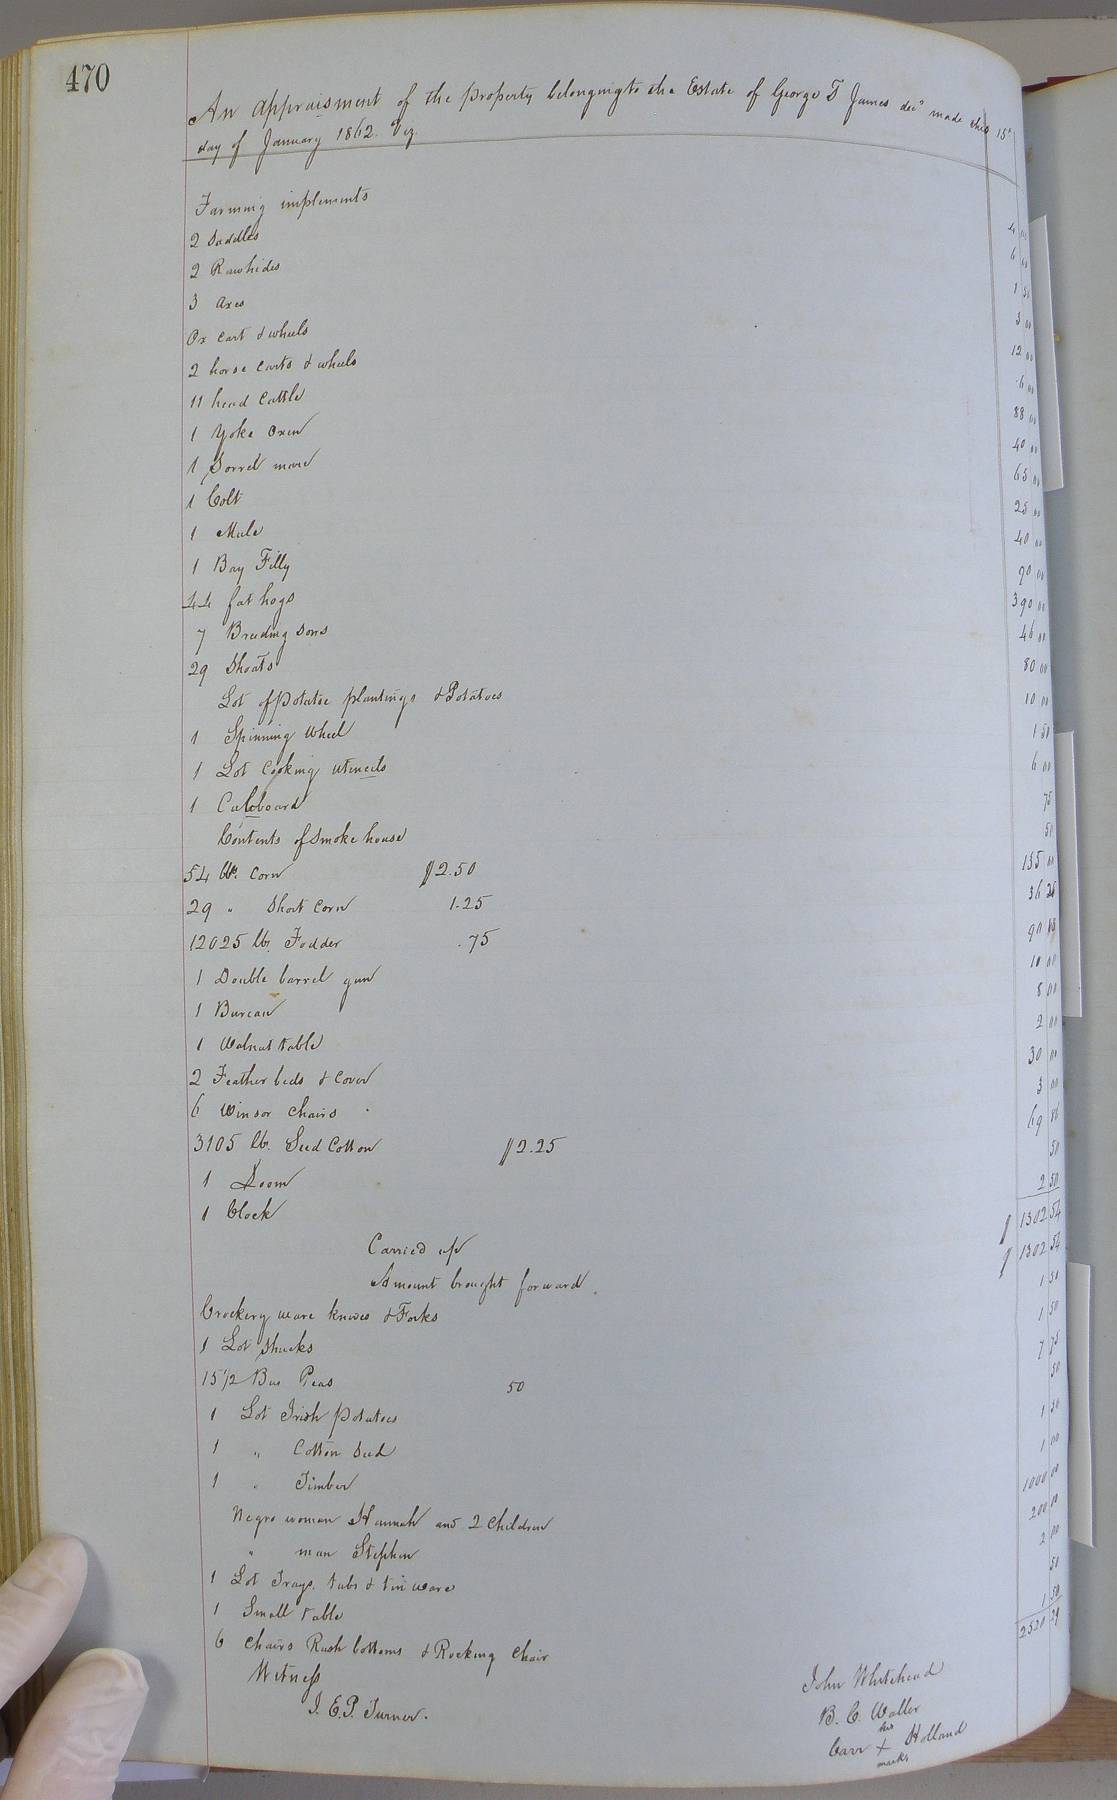 470
An appraisment of the property belonging to the Estate of George T James decd made this 15th
day of January 1862. Viz.
Farming implements 4 00
2 Saddles 6 00
2 Rawhides 1 50
3 axes 3 00
Ox cart & wheels 12 00
2 horse carts & wheels 6 00
11 head Cattle 88 00
1 Yoke Oxen 40 00
1 Sorrel mare 65 00
1 Colt 25 00
1 Mule 40 00
1 Bay Filly 90 00
44 fat hogs 390 00
7 Breeding sows 46 00
29 Shoats 80 00
Lot of potatoe plantings & Potatoes 10 00
1 Spinning Wheel 1 50
1 Lot Cooking utencils 6 00
1 Cubboard 75
Contents of Smoke house 50
54 bbs. Corn $2.50 135 00
29 " Short Corn 1.25 36 25
12025 lbs. Fodder .75 90 18
1 Double barrel gun 10 00
1 Bureau 8 00
1 Walnut table 2 00
2 Feather beds & Cover 30 00
6 Winsor Chairs 3 00
3105 lbs. Seed Cotton $2.25 69 86
1 Loom 50
1 Clock 2 50
Carried up $1302 54
Amount brought forward $1302 54
Crockery ware knives & Forks 1 50
1 Lot Shucks 1 50
15 1/2 Bus Peas 50 7 75
1 Lot Irish potatoes 50
1 " Cotton Seed 1 50
1 " Timber 1 00
Negro woman Hannah and 2 Children 1000 00
" man Stephen 200 00
1 Lot Trays, tubs & tin ware 2 00
1 Small table 50
6 Chairs Rush bottoms & Rocking Chair 1 50
2520 29
Witness
J. E. P. Turner.
John Whitehead
B. C. Waller
his
Carr X Holland
mark